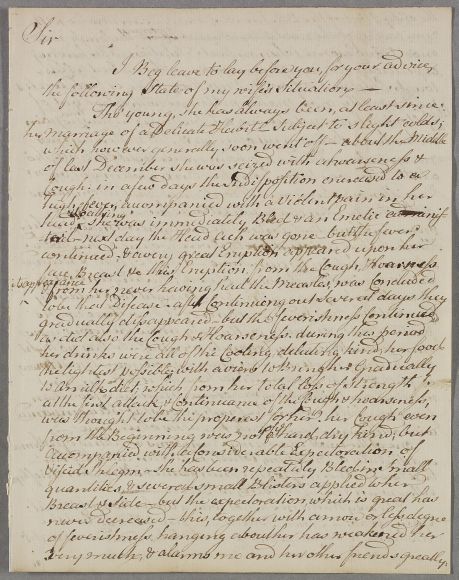 Sir
I Beg leave to lay before you, for your advice,
the following State of my wifes Situation —
Tho' young, she has always been, at least since
her marriage of a Delicate Habit & Subject to slight colds;
which however generally soon went off — about the Middle
of last December she was seized with a hoarseness &
Cough. in a few days the Indisposition encreased to a
high fever, accompanied with a violent pain in her
head, she was immediately Bled & an Emetic
next day the Head Ach was gone but the fever
continued, & a very great Eruption appeared upon her
face, Breast & this Eruption, from the Cough, Hoarseness
& from her never having had the Measles, was concluded
to be that Disease. after continuing out several days they
gradually disappeared — but the feverishness continued
as did also the Cough & Hoarseness. during this period
her drinks were all of the Cooling, kind, her food
the lightest possible, with a view to Bring her Gradually
to a milk diet, which from her total loss of Strength
at the first attack & continuance of the Cough & hoarseness,
was thought to be the properest for her. her Cough even
from the Beginning was not of the hard, dry kind, but
Accompanied with a considerable Expectoration of
viscid Phlegm — She has been repeatedly Bled in small
quantities, & several small Blisters applied to her
Breast & Side — but the expectoration which is great has
never decreased — this, together with a more or less degree
of feverishness hanging about her has weakened her
very much, & alarms me and her other friends greatly.